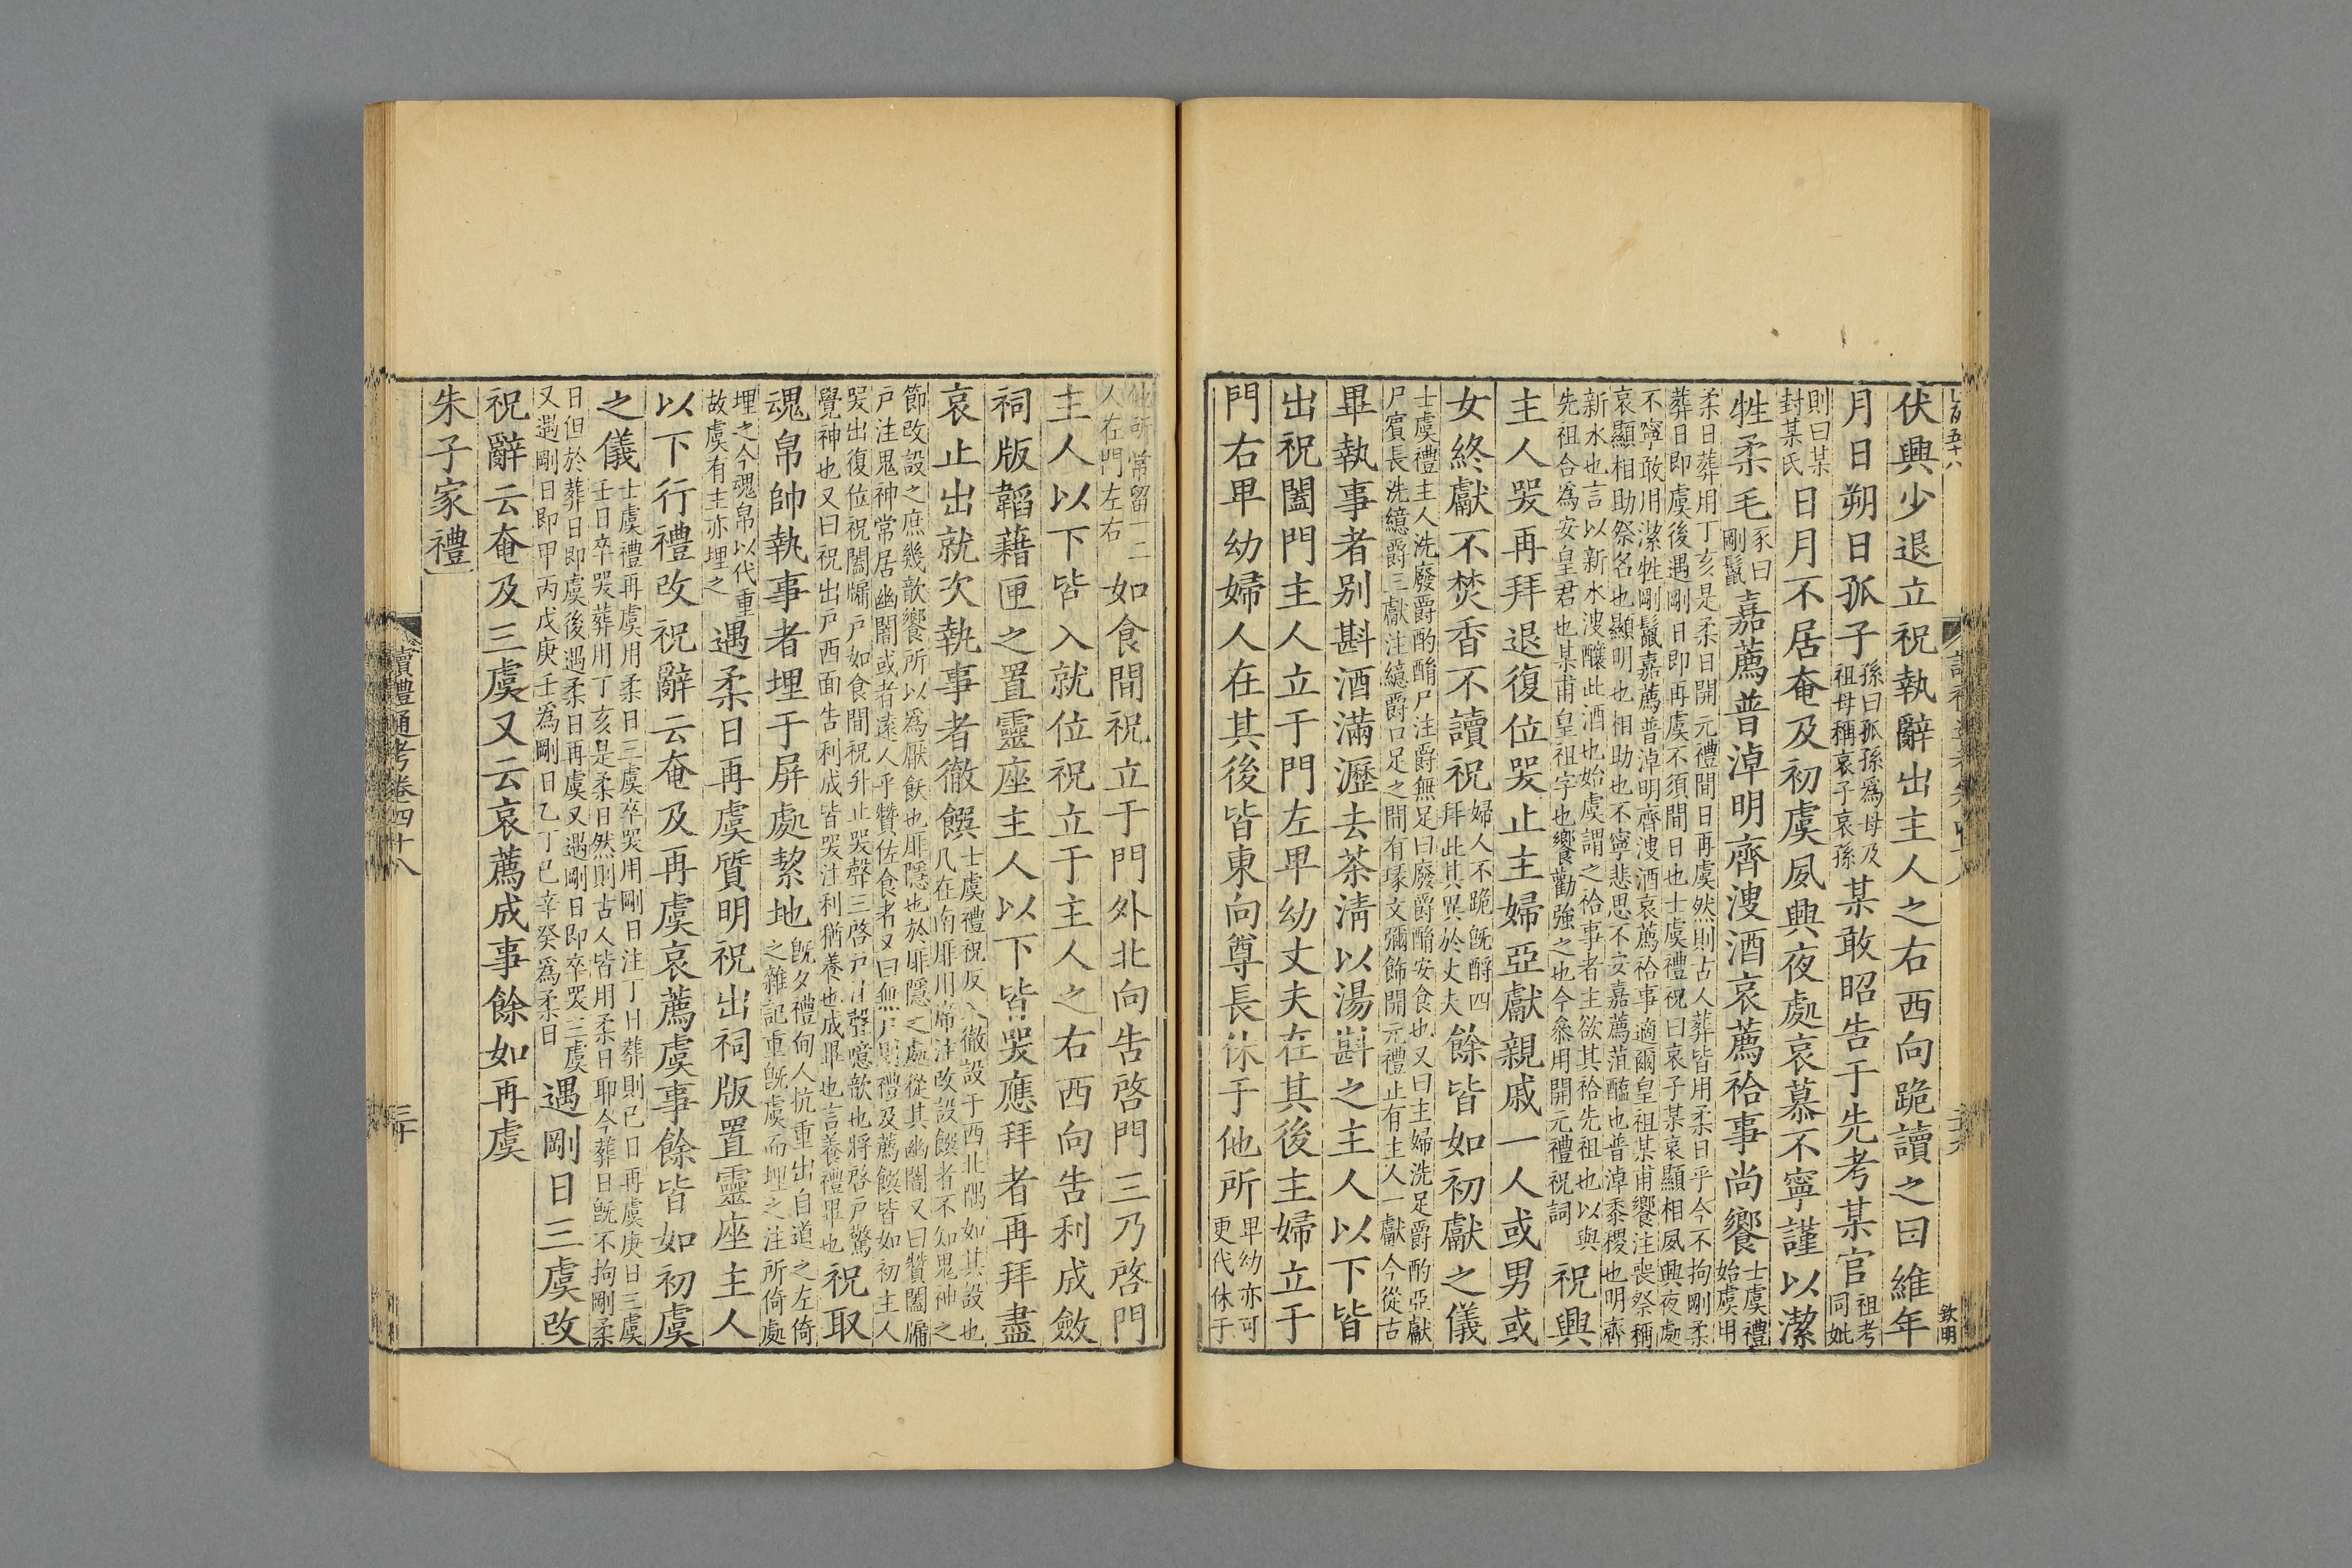 伏興少退立祝執辭出主人之右西向跪讀之曰維年
月日朔日孤子孫曰孤孫爲母及祖母稱哀子哀孫某敢昭告于先考某官祖考妣同
則曰某封某氏日月不居奄及初虞夙興夜處哀慕不寧謹以潔
牲柔毛豕曰剛鬣嘉薦普淖明齊溲酒哀薦祫事尚饗士虞禮始虞用
柔日葬用丁亥是柔日開元禮間日再虞然則古人葬皆用柔日乎今不拘剛柔
葬日即虞後遇剛日即再虞不須間日也士虞禮祝曰哀子某哀顯相夙興夜處
不寧敢用潔牲剛鬣嘉薦普淖明齊溲酒哀薦祫事適爾皇祖某甫饗注喪祭稱
哀顯相助祭名也顯明也相助也不寧悲思不安嘉薦菹醢也普淖黍稷也明齊
新水也言以新水溲釀此酒也始虞謂之祫事者主欲其祫先祖也以與
先祖合爲安皇君也某甫皇祖字也饗勸強之也今叅用開元禮祝詞祝興
主人哭再拜退復位哭止主婦亞獻親戚一人或男或
女終獻不焚香不讀祝婦人不跪旣酹四拜此其異於丈夫餘皆如初獻之儀
士虞禮主人洗廢爵酌酳尸注爵無足曰廢爵酳安食也又曰主婦洗足爵酌亞獻
尸賓長洗繶爵三獻注繶爵口足之間有瑑文彌飾開元禮止有主人一獻今從古
畢執事者别斟酒滿瀝去茶清以湯斟之主人以下皆
出祝闔門主人立于門左卑幼丈夫在其後主婦立于
門右卑幼婦人在其後皆東向尊長休于他所卑幼亦可更代休于
他所常留一二人在門左右如食間祝立于門外北向告啓門三乃啓門
主人以下皆入就位祝立于主人之右西向告利成斂
祠版韜藉匣之置靈座主人以下皆哭應拜者再拜盡
哀止出就次執事者徹饌士虞禮祝反入徹設于西北隅如其設也几在南厞用席注改設饌者不知鬼神之
節改設之庶幾歆饗所以爲厭飫也厞隱也於厞隱之處從其幽闇又曰贊闔牖
戶注鬼神常居幽闇或者遠人乎贊佐食者又曰無尸則禮及薦饌皆如初主人
哭出復位祝闔牖戶如食間祝升止哭聲三啓戶注聲噫歆也將啓戶驚
覺神也又曰祝出戶西面告利成皆哭注利猶養也成畢也言養禮畢也祝取
魂帛帥執事者埋于屏處絜地旣夕禮甸人抗重出自道之左倚之雜記重旣虞而埋之注所倚處
埋之今魂帛以代重故虞有主亦埋之遇柔日再虞質明祝出祠版置靈座主人
以下行禮改祝辭云奄及再虞哀薦虞事餘皆如初虞
之儀士虞禮再虞用柔日三虞卒哭用剛日注丁日葬則己日再虞庚日三虞壬日卒哭葬用丁亥是柔日然則古人皆用柔日耶今葬日旣不拘剛柔
日但於葬日即虞後遇柔日再虞又遇剛日即卒哭三虞
又遇剛日即甲丙戊庚壬爲剛日乙丁己辛癸爲柔日遇剛日三虞改
祝辭云奄及三虞又云哀薦成事餘如再虞
朱子家禮
讀禮通考卷四十八
三十
欽明